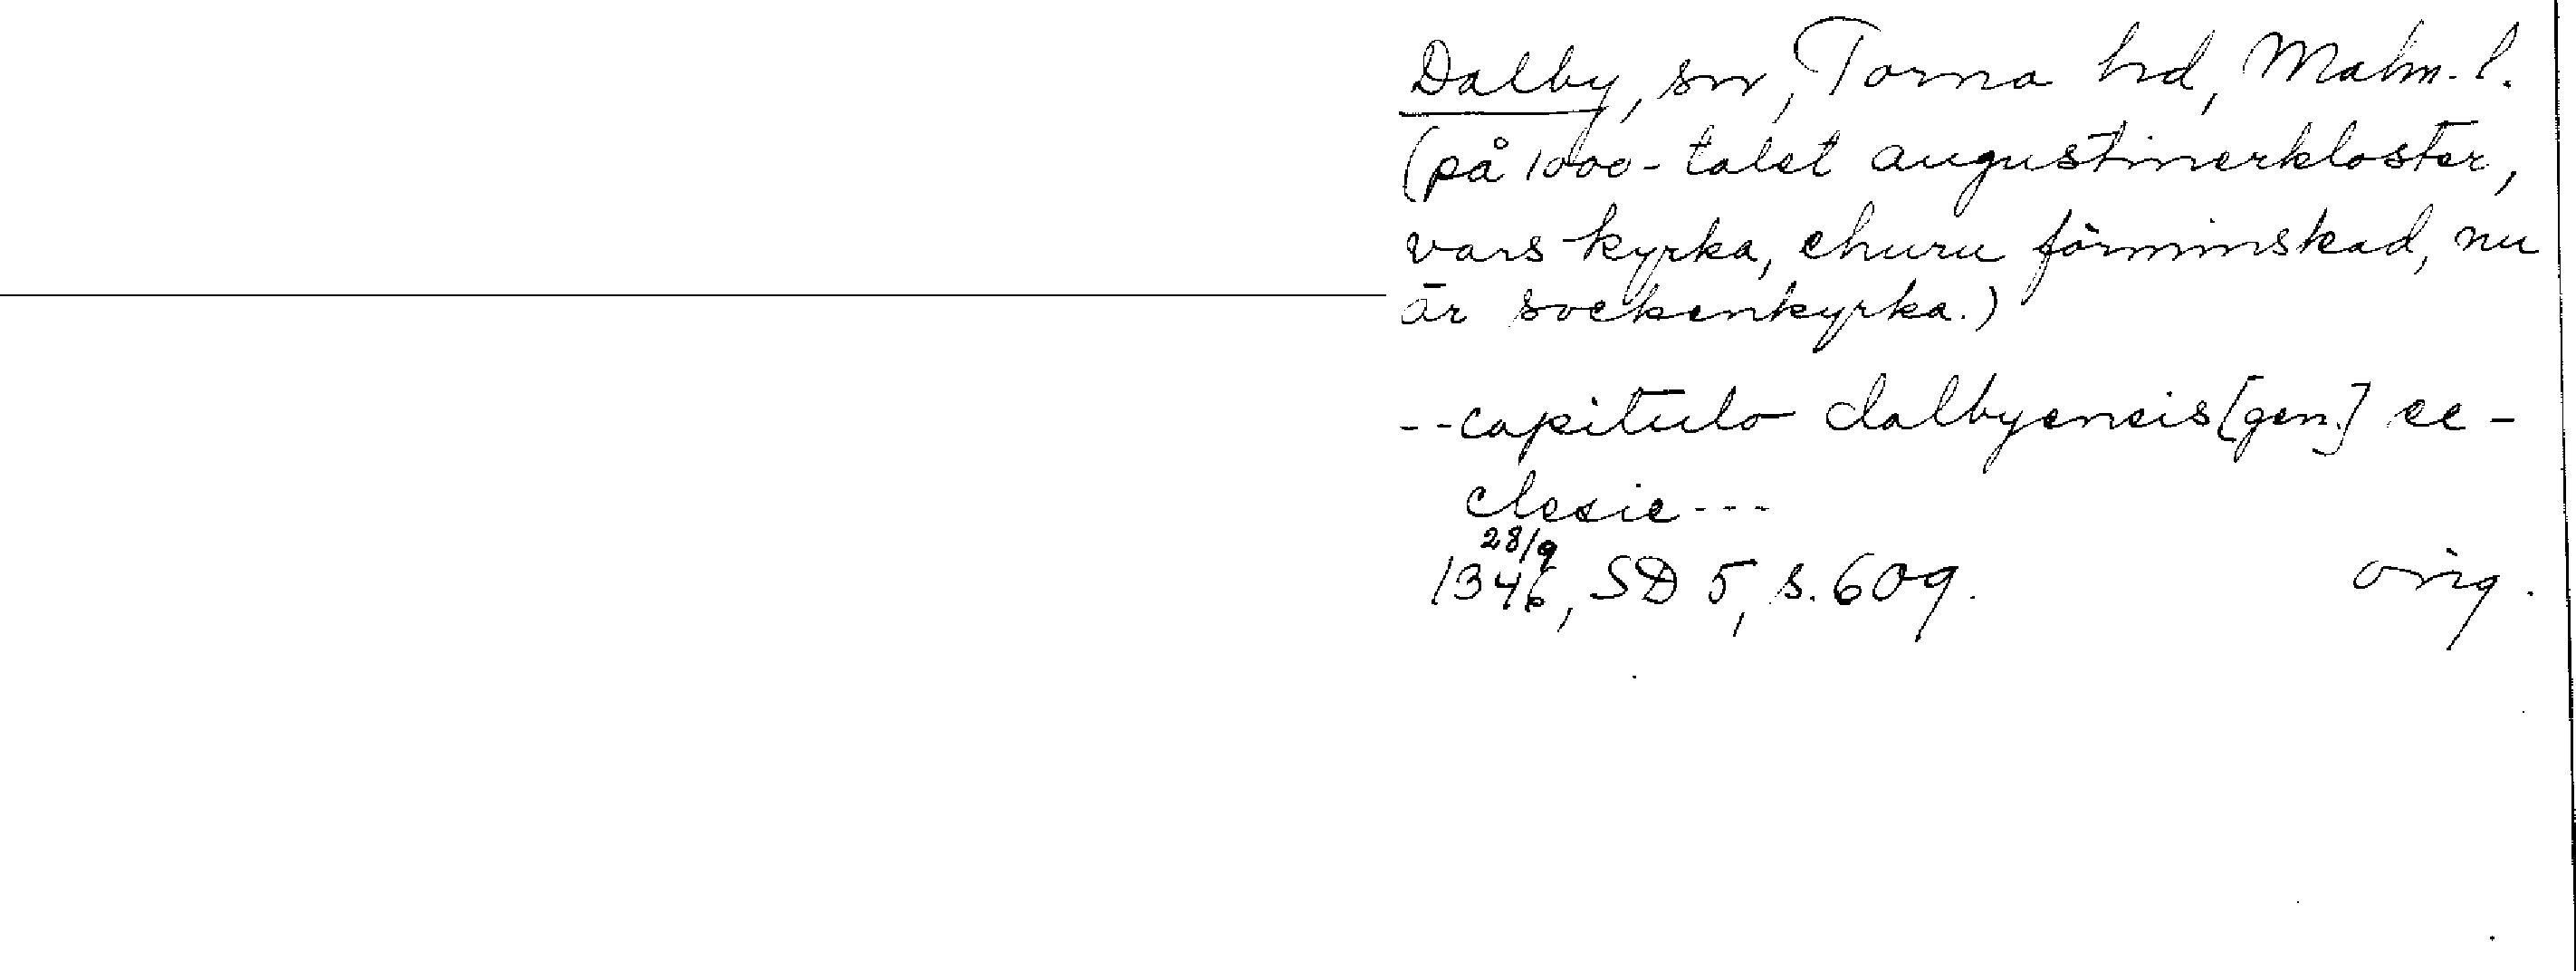 Dalby, sn, Torna hd, Malm. l.
(på 1000-talet augustinerkloster,
vars kyrka, ehuru förminskad, nu
är sockenkyrka.)
--capitulo dalbyensis [gen.] ec-
clesie---
28/9
1346, SD 5, s. 609. orig.